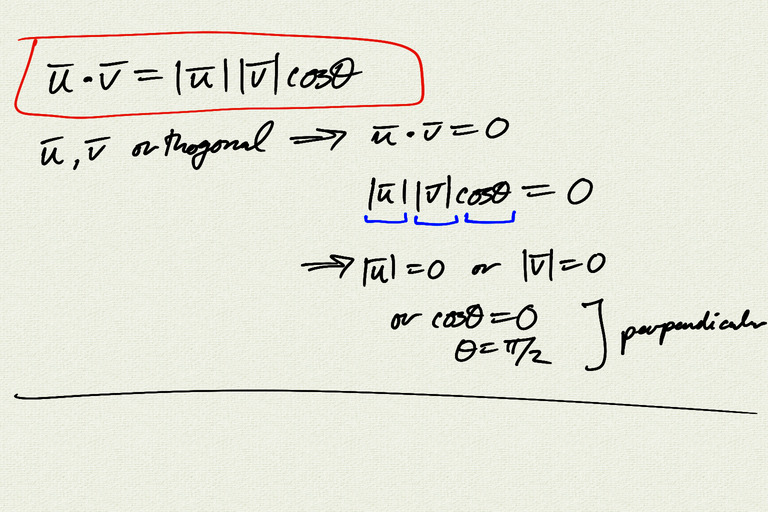 u̅ · v̅ = |u̅| |v̅| cosθ
u̅, v̅ orthogonal ⟹ u̅ · v̅ = 0
|u̅| |v̅| cosθ = 0
⟹ |u̅| = 0 or |v̅| = 0
or cosθ = 0
θ = π/2 ] perpendicular